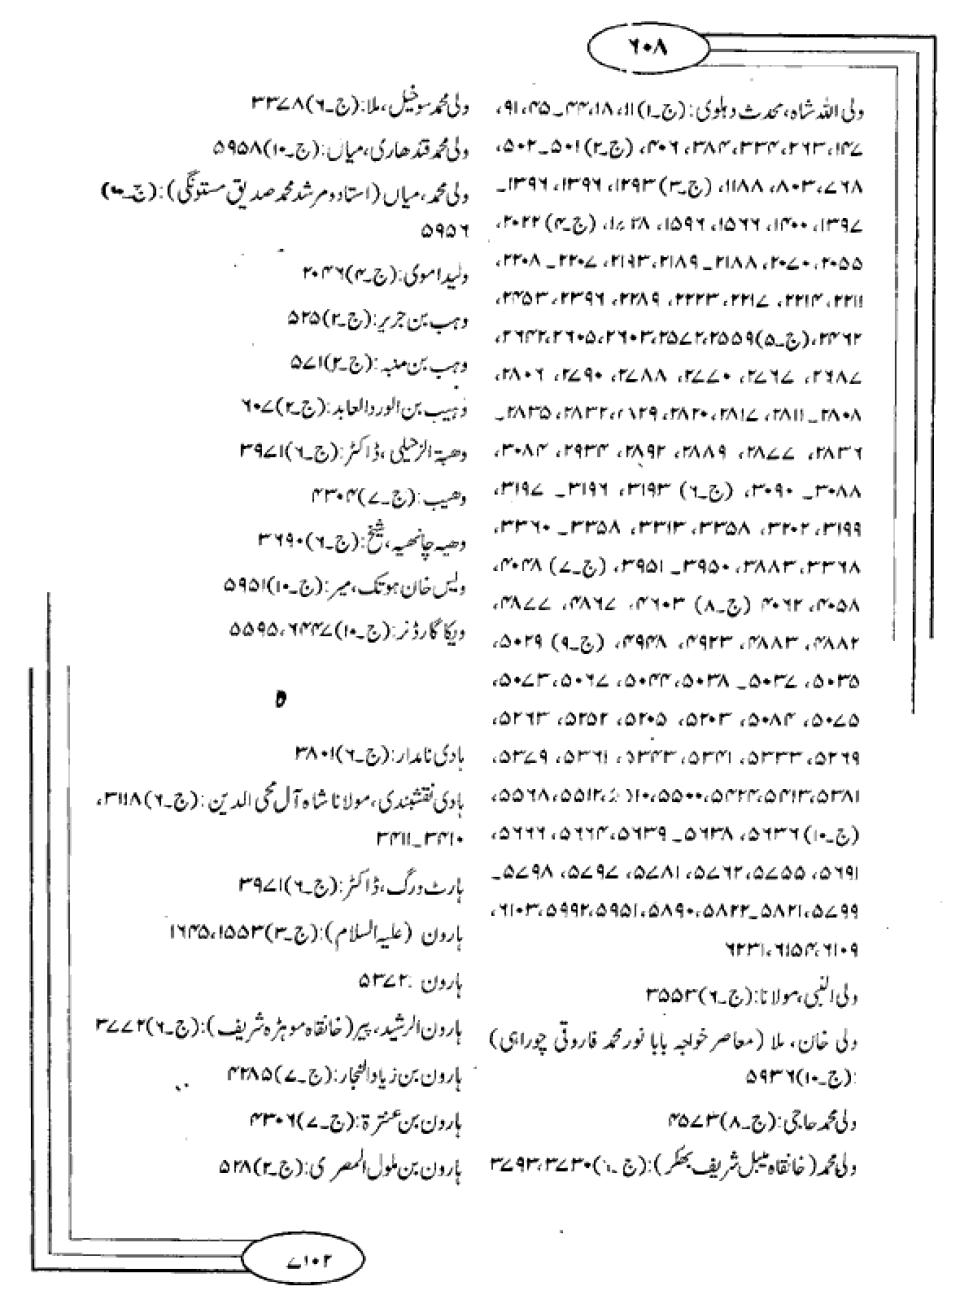 ۶۰۸
ولی اللہ شاہ، محدث دہلوی: (ج۔۱) ۱۱، ۱۸، ۴۴۔ ۴۵، ۹۱،
۱۴۷، ۲۶۳، ۳۳۴، ۳۸۴، ۴۰۶، (ج۔۲) ۵۰۱۔ ۵۰۲،
۷۶۸، ۸۰۳، ۱۱۸۸، (ج۔۳) ۱۲۹۳، ۱۳۹۶، ۱۳۹۶۔
۱۳۹۷، ۱۴۰۰، ۱۵۶۶، ۱۵۹۶، (ج۔۴) ۲۰۲۲،
۲۰۵۵، ۲۰۷۰، ۲۱۸۸۔ ۲۱۸۹، ۲۱۹۳، ۲۲۰۷۔ ۲۲۰۸،
۲۲۱۱، ۲۲۱۴، ۲۲۱۷، ۲۲۲۳، ۲۲۸۹، ۲۳۹۶، ۲۴۵۳،
۲۴۶۲، (ج۔۵) ۲۵۵۹، ۲۵۷۲، ۲۶۰۳، ۲۶۰۵، ۲۶۴۲،
۲۶۸۷، ۲۷۶۷، ۲۷۷۰، ۲۷۸۸، ۲۷۹۰، ۲۸۰۶،
۲۸۰۸۔ ۲۸۱۱، ۲۸۱۷، ۲۸۲۰، ۲۸۲۹، ۲۸۳۲، ۲۸۳۵۔
۲۸۳۶، ۲۸۷۷، ۲۸۸۹، ۲۸۹۲، ۲۹۳۴، ۳۰۸۴،
۳۰۸۸۔ ۳۰۹۰، (ج۔۶) ۳۱۹۳، ۳۱۹۶۔ ۳۱۹۷،
۳۱۹۹، ۳۲۰۲، ۳۳۵۸، ۳۳۱۳، ۳۳۵۸۔ ۳۳۶۰،
۳۳۶۸، ۳۸۸۳، ۳۹۵۰۔ ۳۹۵۱، (ج۔۷) ۴۰۴۸،
۴۰۵۸، ۴۰۶۲ (ج۔۸) ۴۶۰۳، ۴۸۶۷، ۴۸۷۷،
۴۸۸۲، ۴۸۸۳، ۴۹۲۳، ۴۹۴۸، (ج۔۹) ۵۰۲۹،
۵۰۳۵، ۵۰۳۷۔ ۵۰۳۸، ۵۰۴۴، ۵۰۶۷، ۵۰۷۳،
۵۰۷۵، ۵۰۸۴، ۵۲۰۳، ۵۲۰۵، ۵۲۵۲، ۵۲۶۳،
۵۲۶۹، ۵۳۳۳، ۵۳۴۱، ۵۳۴۳، ۵۳۶۱، ۵۳۷۹،
۵۳۸۱، ۵۴۱۳، ۵۴۲۴، ۵۵۰۰، ۵۵۱۲، ۵۵۶۸،
(ج۔۱۰) ۵۶۳۶، ۵۶۳۸۔ ۵۶۳۹، ۵۶۶۴، ۵۶۶۶،
۵۶۹۱، ۵۷۵۵، ۵۷۶۲، ۵۷۸۱، ۵۷۹۷، ۵۷۹۸۔
۵۷۹۹، ۵۸۲۱۔۵۸۲۲، ۵۸۹۰، ۵۹۵۱، ۵۹۹۲، ۶۱۰۳،
۶۱۰۹، ۶۱۵۴، ۶۲۳۱
ولی النبی، مولانا: (ج۔۶) ۳۵۵۳
ولی خان، ملا (معاصر خواجہ بابا نور محمد فاروقی چوراہی)
: (ج۔۱۰) ۵۹۳۶
ولی محمد حاجی: (ج۔۸) ۴۵۷۳
ولی محمد (خانقاہ میبل شریف بھکر): (ج۔۶) ۳۷۳۰، ۳۷۹۳
ولی محمد سوخیل، ملا: (ج۔۶) ۳۳۷۸
ولی محمد قندھاری، میاں: (ج۔۱۰) ۵۹۵۸
ولی محمد، میاں (استاد و مرشد محمد صدیق مستونگی): (ج۔۱۰)
۵۹۵۶
ولید اموی: (ج۔۴) ۲۰۴۶
وہب بن جریر: (ج۔۲) ۵۲۵
وہب بن منبہ: (ج۔۲) ۵۷۱
وُہیب بن الورد العابد: (ج۔۲) ۶۰۷
وھبۃ الزحیلی، ڈاکٹر: (ج۔۶) ۳۹۷۱
وھیب: (ج۔۷) ۴۳۰۴
وھیہ چانھیہ، شیخ: (ج۔۶) ۳۶۹۰
ویس خان ہوتک، میر: (ج۔۱۰) ۵۹۵۱
ویکا گارڈنر: (ج۔۱۰) ۶۴۴۷، ۵۵۹۵
ہ
ہادی نامدار: (ج۔۶) ۳۸۰۱
ہادی نقشبندی، مولانا شاہ آل محی الدین: (ج۔۶) ۳۱۱۸،
۳۴۱۰۔۳۴۱۱
ہارٹ ورگ، ڈاکٹر: (ج۔۶) ۳۹۷۱
ہارون (علیہ السلام): (ج۔۳) ۱۵۵۳، ۱۶۴۵
ہارون: ۵۳۷۲
ہارون الرشید، پیر (خانقاہ موہڑہ شریف): (ج۔۶) ۳۷۷۲
ہارون بن زیاد النجار: (ج۔۷) ۴۲۸۵
ہارون بن عنترۃ: (ج۔۷) ۴۳۰۶
ہارون بن ملول المصری: (ج۔۲) ۵۲۸
۷۱۰۲